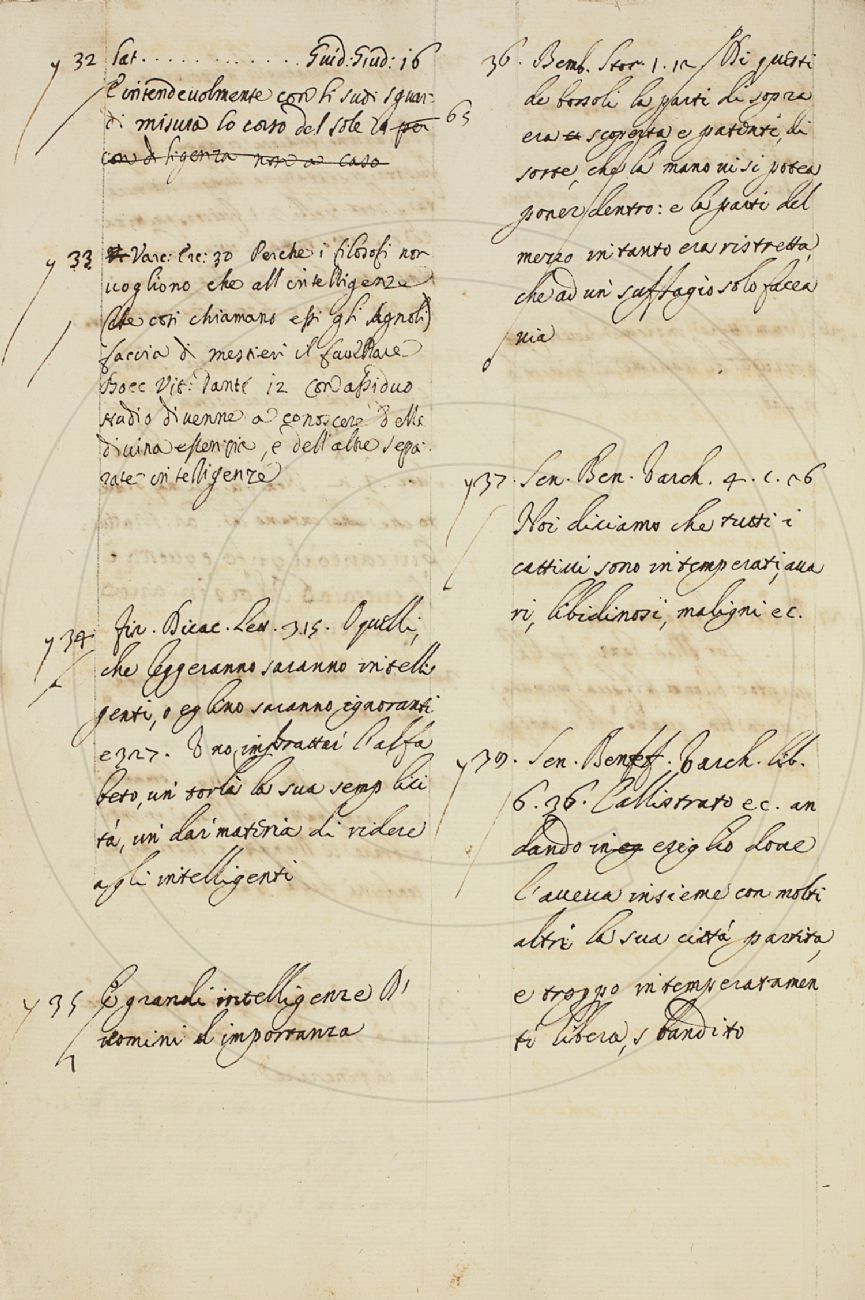 y 32 Sat. . . . . . . . . . . . . Guid: Giud: 16
E intendevolmente con li suoi sguar-
di misura lo corso del sole 29 per 63
con diligenza non a caso
y 33 Varc: Erc: 30 Perche i filosofi non
vogliono che all'intelligenze
(che cosi chiamano essi gli Agnoli)
faccia di mestieri il favellare
Bocc Vit: Dante 12 Con assiduo
studio divenne a conoscere della
divina essenzia, e dell'altre sepa-
rate intelligenze
y 34 Fir. Discac. Lett. 315. O quelli,
che leggeranno saranno intelli
genti, o eglino saranno ignoranti
e 327. V'no imbrattar l'alfa
beto, un' torli la sua semplici
tà, un' dar materia di ridere
agli intelligenti
y 35 E grandi intelligenze d'
uomini d'importanza
36. Bemb. Stor. 1. 12 Di questi
de bossoli la parte di sopra
era scoperta e patente, di
sorte, che la mano vi si potea
poner dentro: e la parte del
mezzo in tanto era ristretta,
che ad un' suffragio solo facea
via
y 37. Sen. Ben. Varch. 4. c. 26
Noi diciamo che tutti i
cattivi sono intemperati, ava
ri, libidinosi, maligni ec.
y 39. Sen. Benef. Varch. lib.
6. 36. Callistrato ec. an
dando in eseglio dove
l'aveva insieme con molti
altri la sua città partita,
e troppo intemperatamen
te libera, sbandito